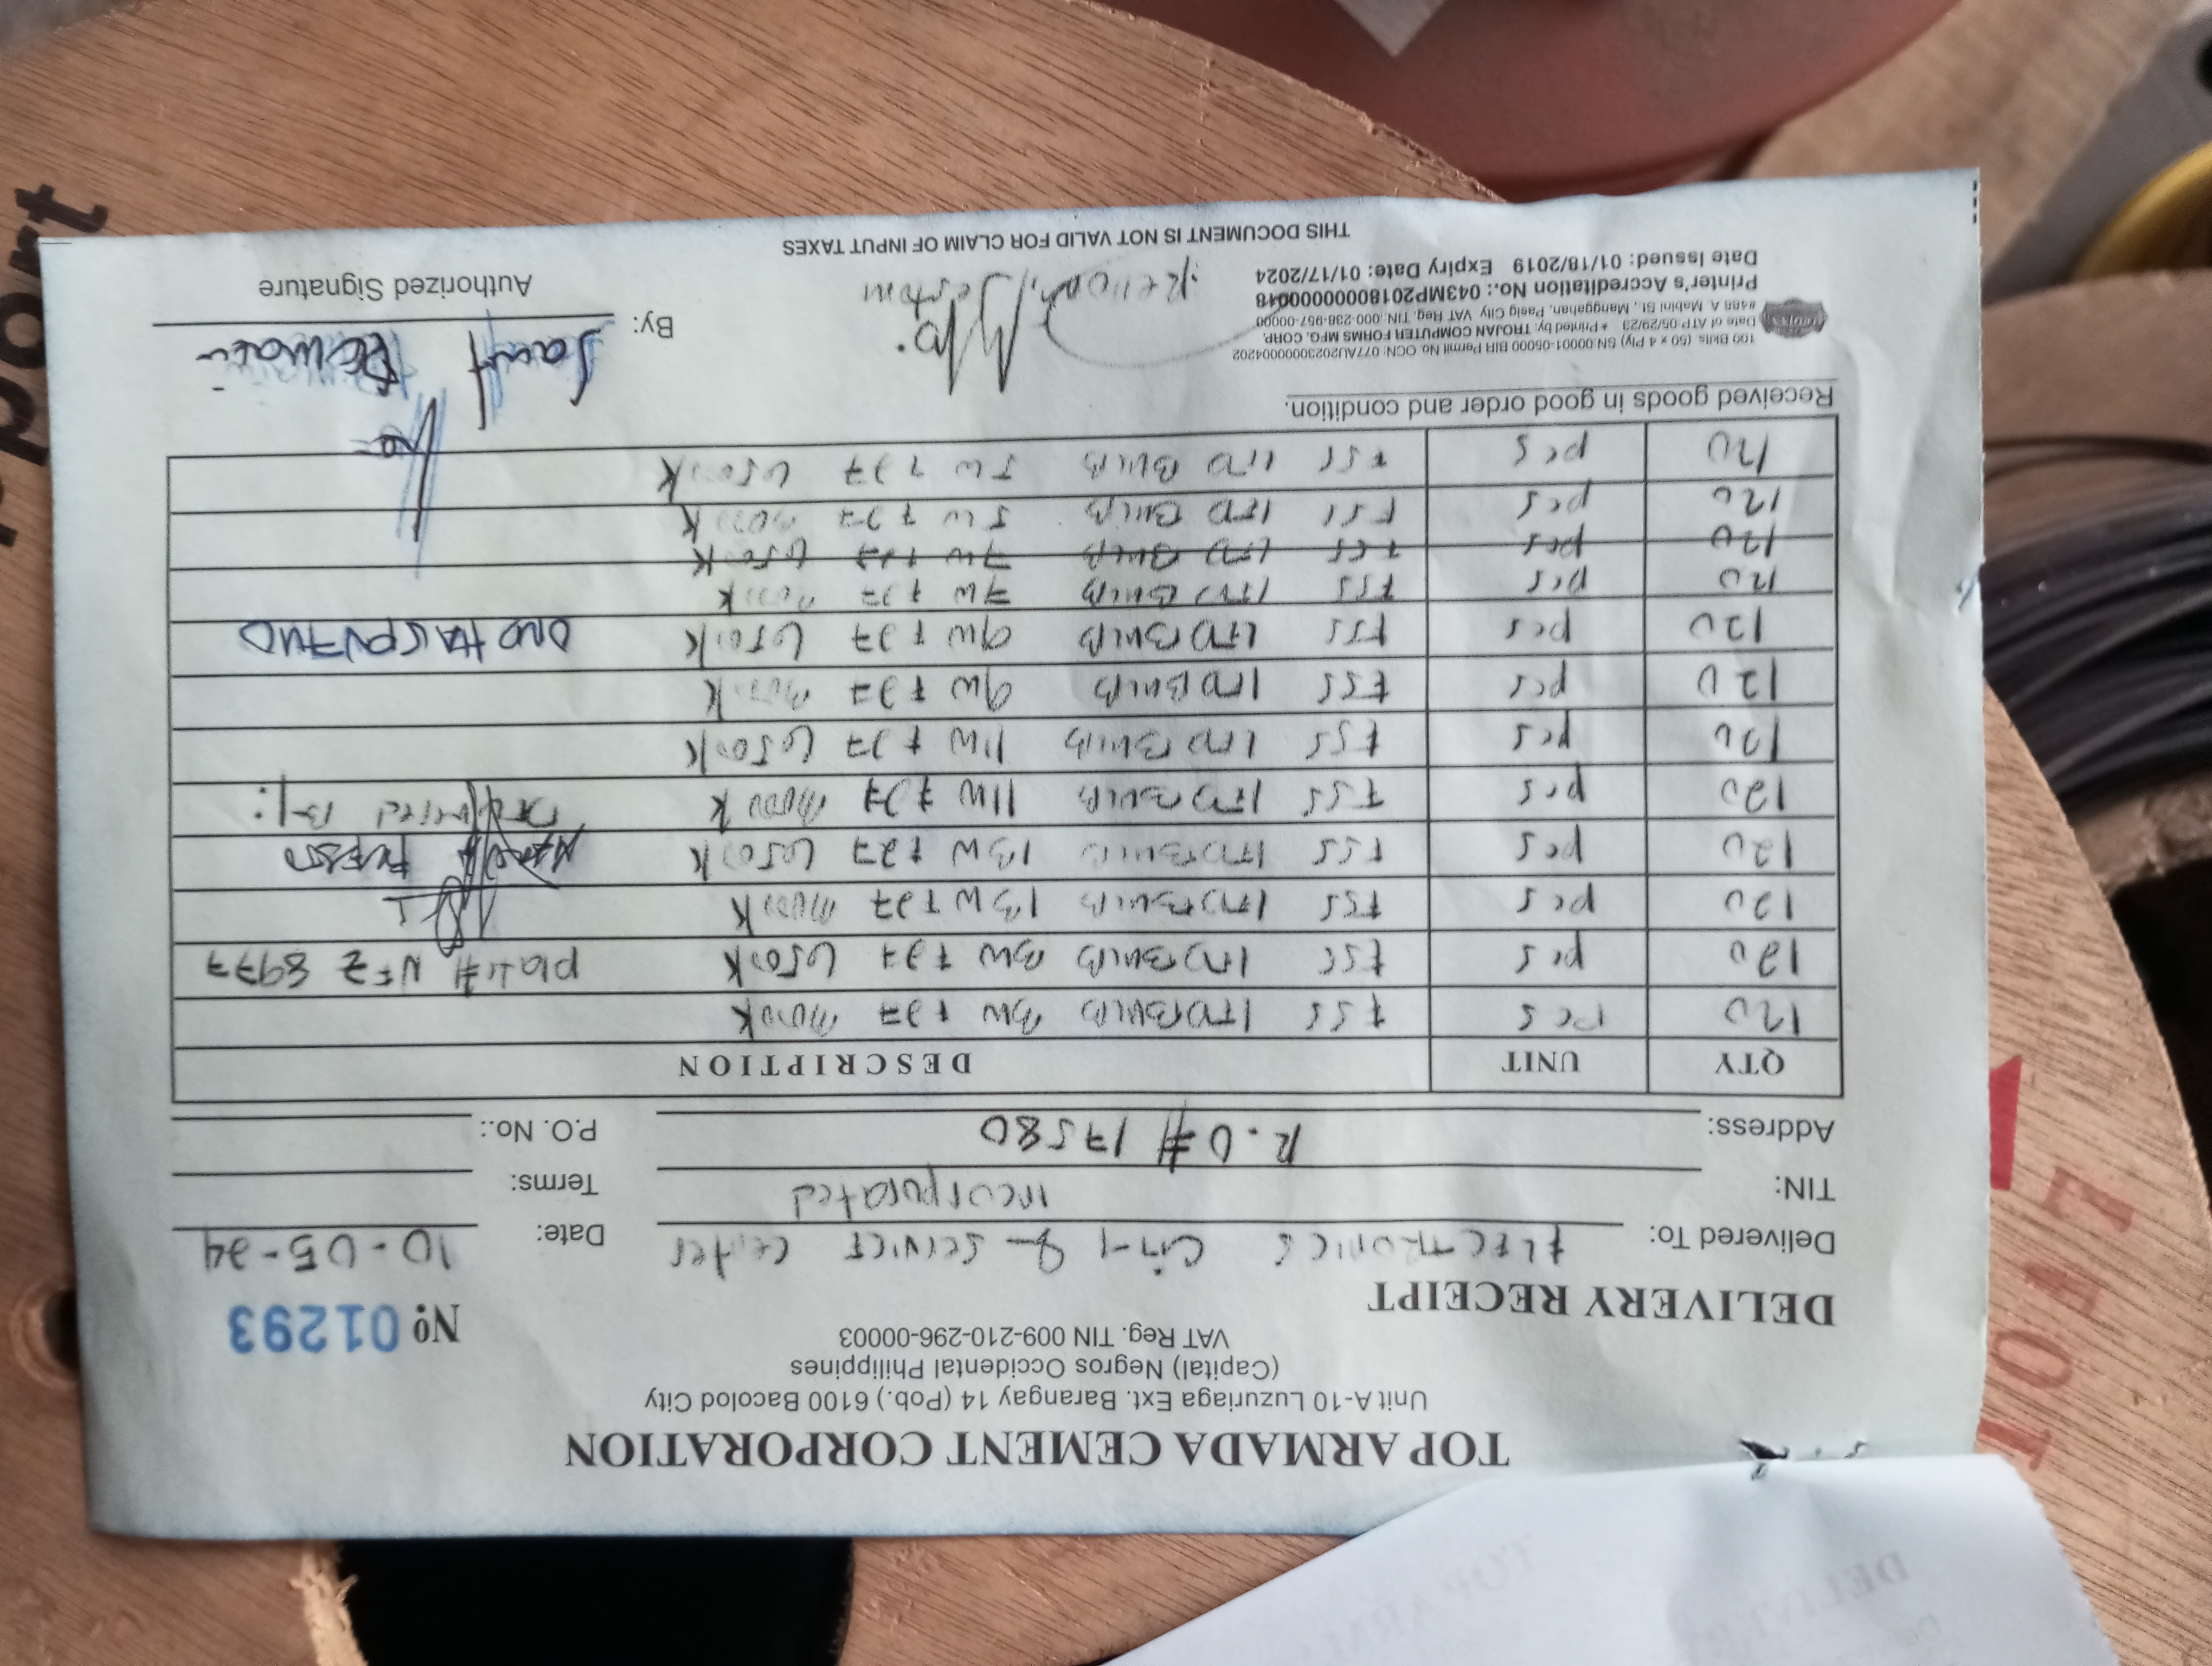 TOP ARMADA CEMENT CORPORATION
Unit A-10 Luzuriaga Ext. Barangay 14 (Pob.) 6100 Bacolod City
(Capital) Negros Occidental Philippines
VAT Reg. TIN 009-210-296-00003
DELIVERY RECEIPT Nº 01293
Delivered To: ELECTRONICS City & SERVICE center Date: 10-05-24
incorporated
TIN: Terms:
Address: R.O # 17580 P.O. No.:
QTY UNIT DESCRIPTION
120 pcs FSL LED BULB 3W E27 3000K
120 pcs FSL LED BULB 3W E27 6500K plate# NFZ 8977
120 pcs FSL LED BULB 13W E27 3000K
120 pcs FSL LED BULB 13W E27 6500K
120 pcs FSL LED BULB 11W E27 3000K Delivered By:
120 pcs FSL LED BULB 11W E27 6500K
120 pcs FSL LED BULB 9W E27 3000K
120 pcs FSL LED BULB 9W E27 6500K
120 pcs FSL LED BULB 7W E27 3000K
120 pcs FSL LED BULB 7W E27 6500K
120 pcs FSL LED BULB 5W E27 3000K
120 pcs FSL LED BULB 5W E27 6500K
Received goods in good order and condition.
100 Bklts. (50 x 4 Ply) SN:00001-05000 BIR Permit No. OCN: 077AU20230000004202
Date of ATP 05/29/23 • Printed by: TROJAN COMPUTER FORMS MFG. CORP.
#488 A. Mabini St., Manggahan, Pasig City VAT Reg. TIN. 000-238-957-00000
Printer's Accreditation No.: 043MP20180000000018
Date Issued: 01/18/2019 Expiry Date: 01/17/2024
By:
Authorized Signature
THIS DOCUMENT IS NOT VALID FOR CLAIM OF INPUT TAXES